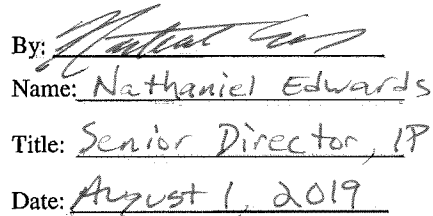 By:
Name: Nathaniel Edwards
Title: Senior Director, IP
Date: August 1, 2019